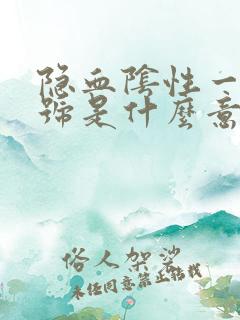 隐血阴性一
号是什麼意
俗人架裟
未经同意禁止转载